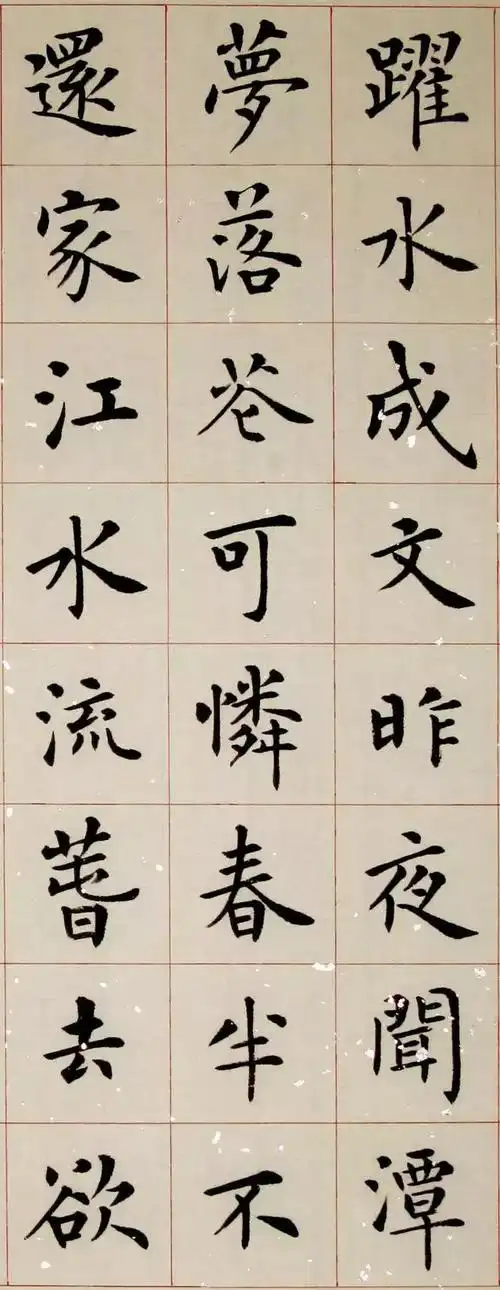 躍水成文昨夜聞潭
夢落花可憐春半不
還家江水流萅去欲